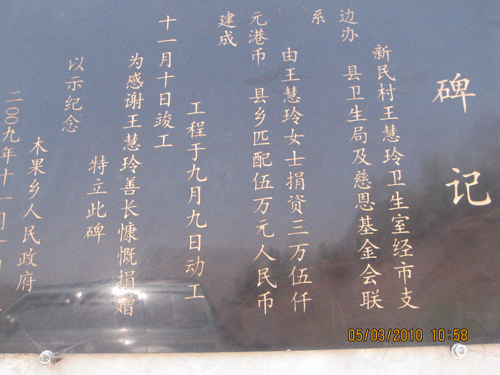 碑记
新民村王慧玲卫生室经市支
边办 县卫生局及慈恩基金会联
系
由王慧玲女士捐资三万伍仟
元港币 县乡匹配伍万元人民币
建成
工程于九月九日动工
十一月十日竣工
为感谢王慧玲善长慷慨捐赠
特立此碑
以示纪念
木果乡人民政府
二〇〇九年十一月
05/03/2010 10:58